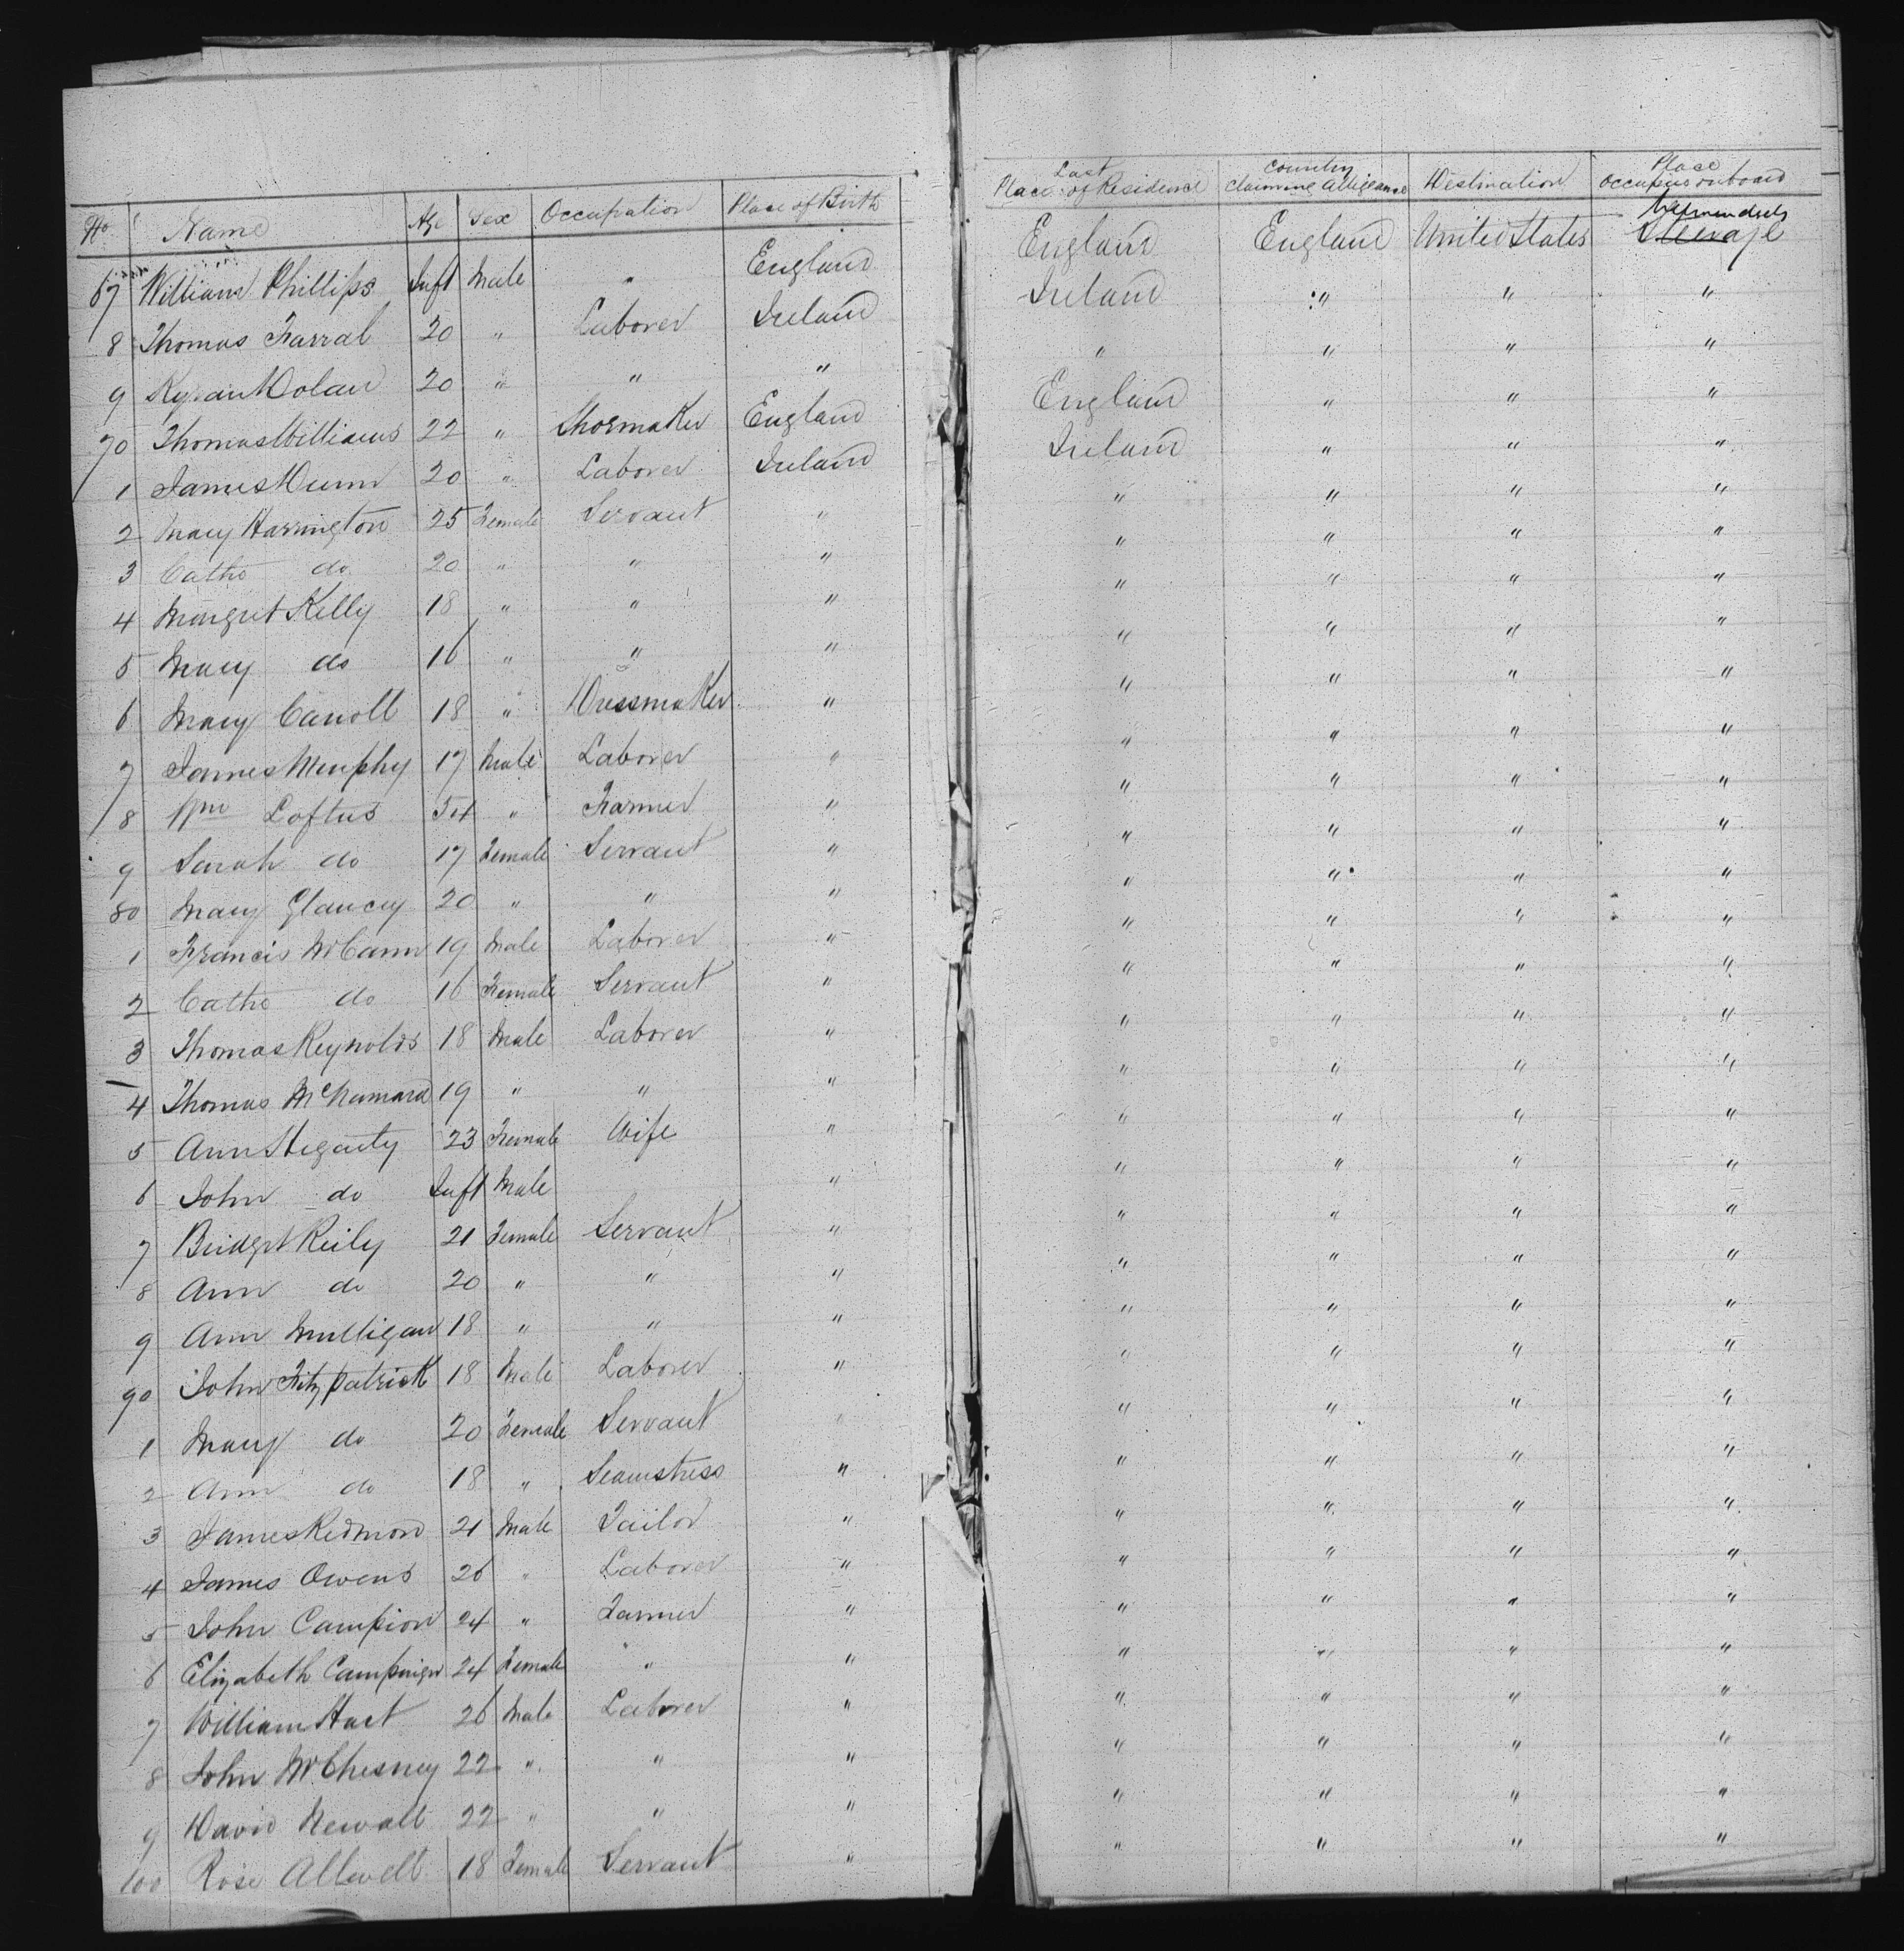 No Name Age Sex Occupation Place of Birth Last Place of Residence Country Claiming Allegeance Destination Place Occupied onboard
67 William Phillips Inft Male " England England England United States Steerage
8 Thomas Farral 20 " Laborer Ireland Ireland " " "
9 Kyran Dolan 20 " " " " " " "
70 Thomas Williams 22 " Shoemaker England England " " "
1 James Dunn 20 " Laborer Ireland Ireland " " "
2 Mary Harrington 25 Female Servant " " " " "
3 Cathe do 20 " " " " " " "
4 Margret Kelly 18 " " " " " " "
5 Mary do 16 " " " " " " "
6 Mary Carroll 18 " Dressmaker " " " " "
7 James Murphy 17 Male Laborer " " " " "
8 Wm Loftus 54 " Farmer " " " " "
9 Sarah do 17 Female Servant " " " " "
80 Mary Glancey 20 " " " " " " "
1 Francis McCann 19 Male Laborer " " " " "
2 Cathe do 16 Female Servant " " " " "
3 Thomas Reynolds 18 Male Laborer " " " " "
4 Thomas McNamara 19 " " " " " " "
5 Ann Hegarty 23 Female Wife " " " " "
6 John do Inft Male " " " " "
7 Bridget Reily 21 Female Servant " " " " "
8 Ann do 20 " " " " " " "
9 Ann Mulligan 18 " " " " " " "
90 John Fitzpatrick 18 Male Laborer " " " " "
1 Mary do 20 Female Servant " " " " "
2 Ann do 18 " Seamstress " " " " "
3 James Redmon 21 Male Tailor " " " " "
4 James Owens 26 " Laborer " " " " "
5 John Campion 24 " Farmer " " " " "
6 Elizabeth Campaign 24 Female " " " " " "
7 William Hart 26 Male Laborer " " " " "
8 John McChesney 22 " " " " " " "
9 David Newall 22 " " " " " " "
100 Rose Allwell 18 Female Servant " " " " "